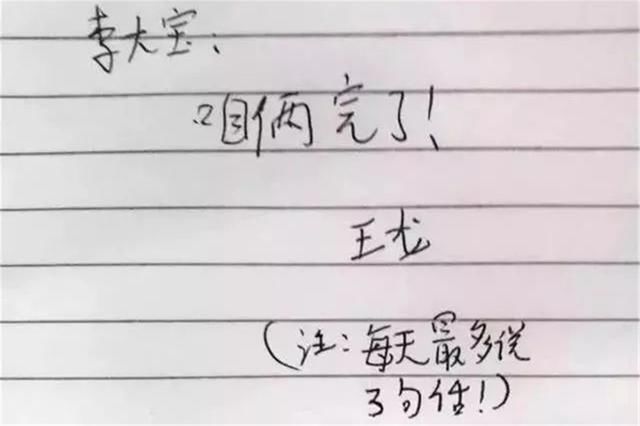 李大宝：
咱俩完了！
王龙
（注：每天最多说
3句话！）